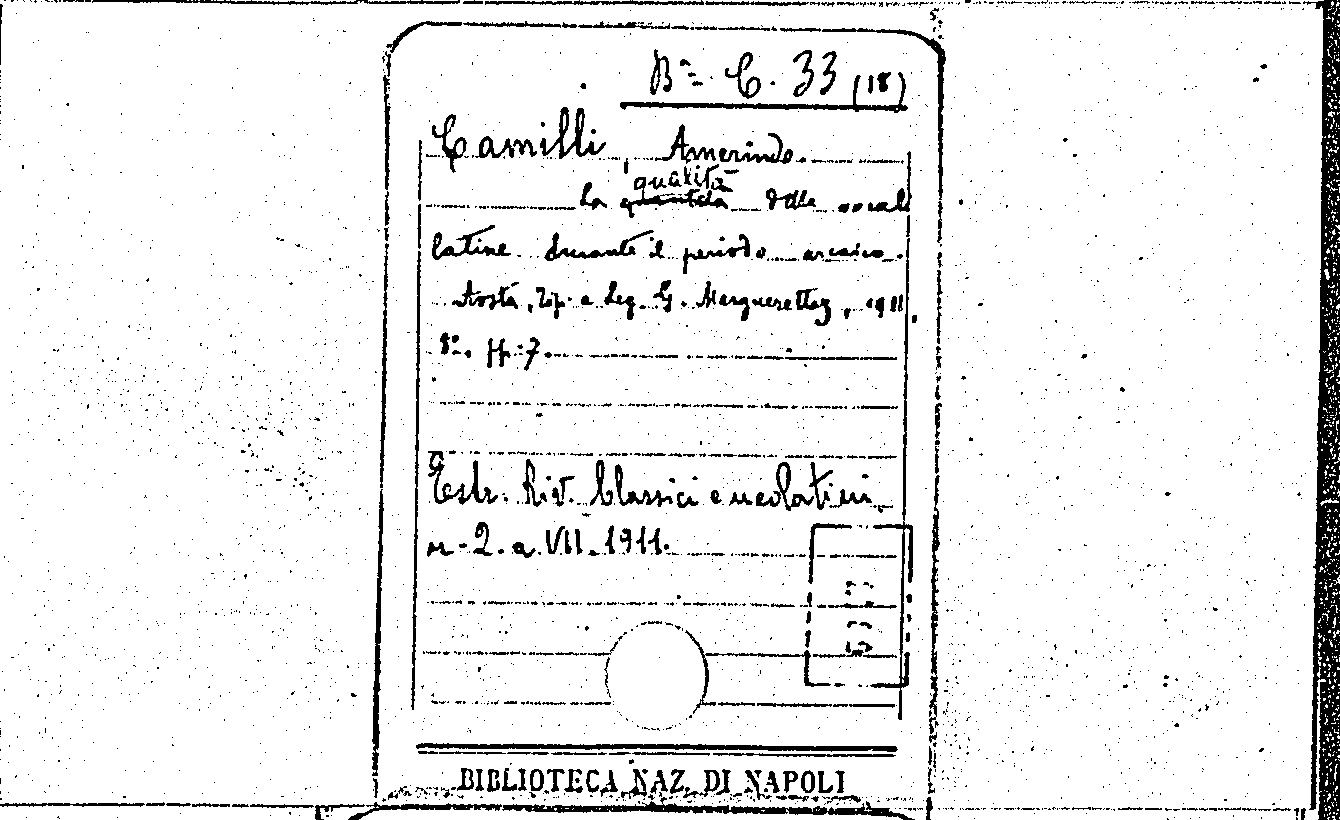 Bª. C. 33 (18)
Camilli, Amerindo.
qualità
La quantità delle vocali
latine durante il periodo arcaico.
Aosta, Tip. e Leg. G. Marguerettaz, 1911
8°. pp. 7.
Estr. Riv. Classici e neolatini
n. 2. a VII. 1911.
BIBLIOTECA NAZ. DI NAPOLI